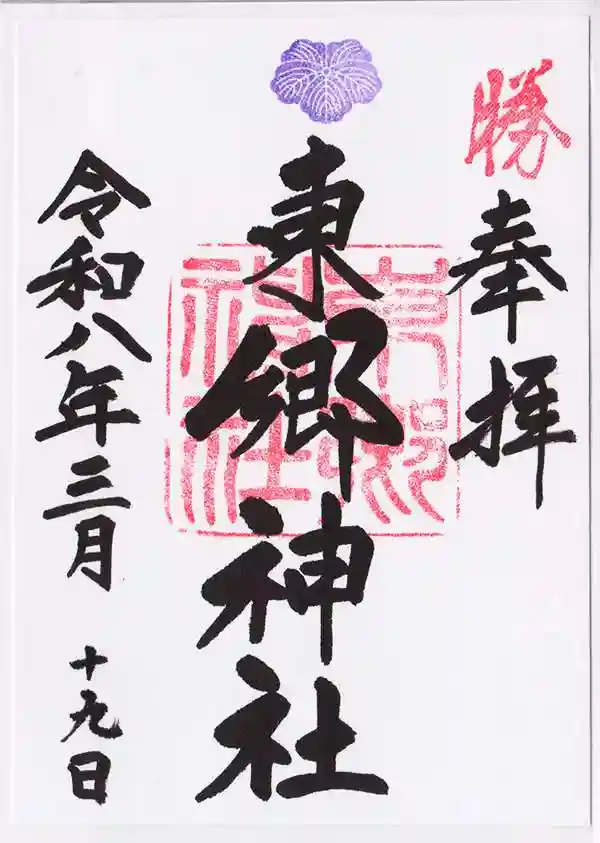 勝
奉拝
東郷神社
令和八年三月
十九日